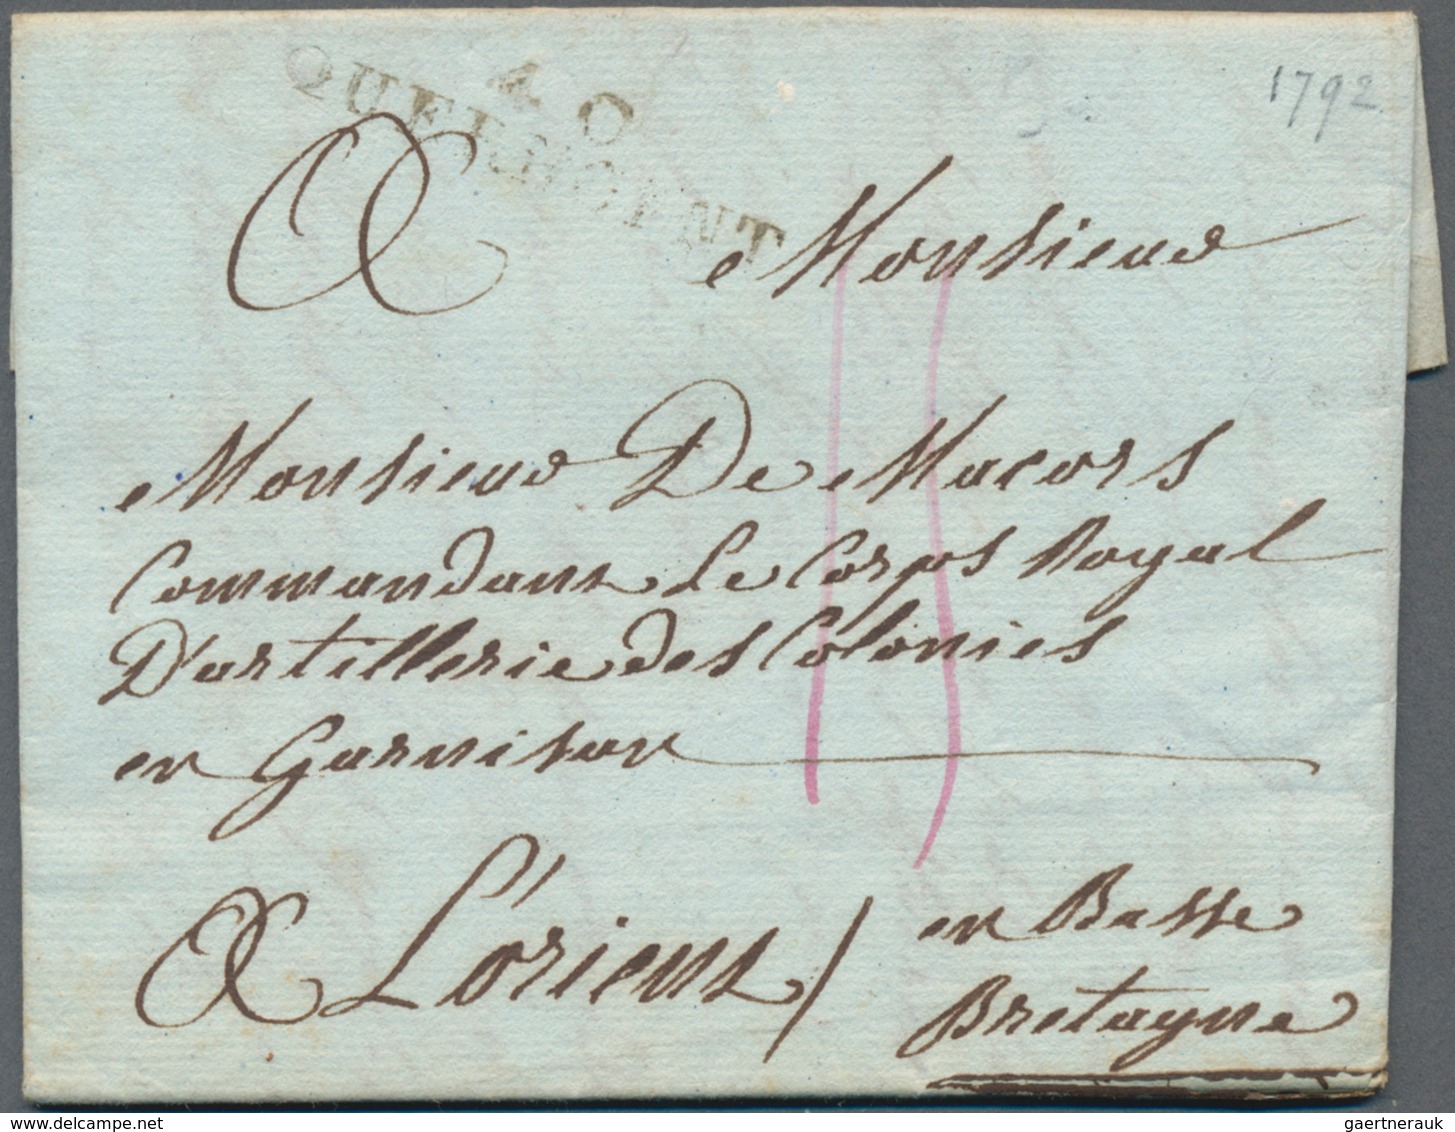 40
QUERHOENT
1792
A Monsieur
Monsieur De Macors
Commandant Le Corps Royal
D'artillerie des Colonies
en Garnison
A L'orient / en Basse
Bretagne
delcampe.net
gaertnerauk